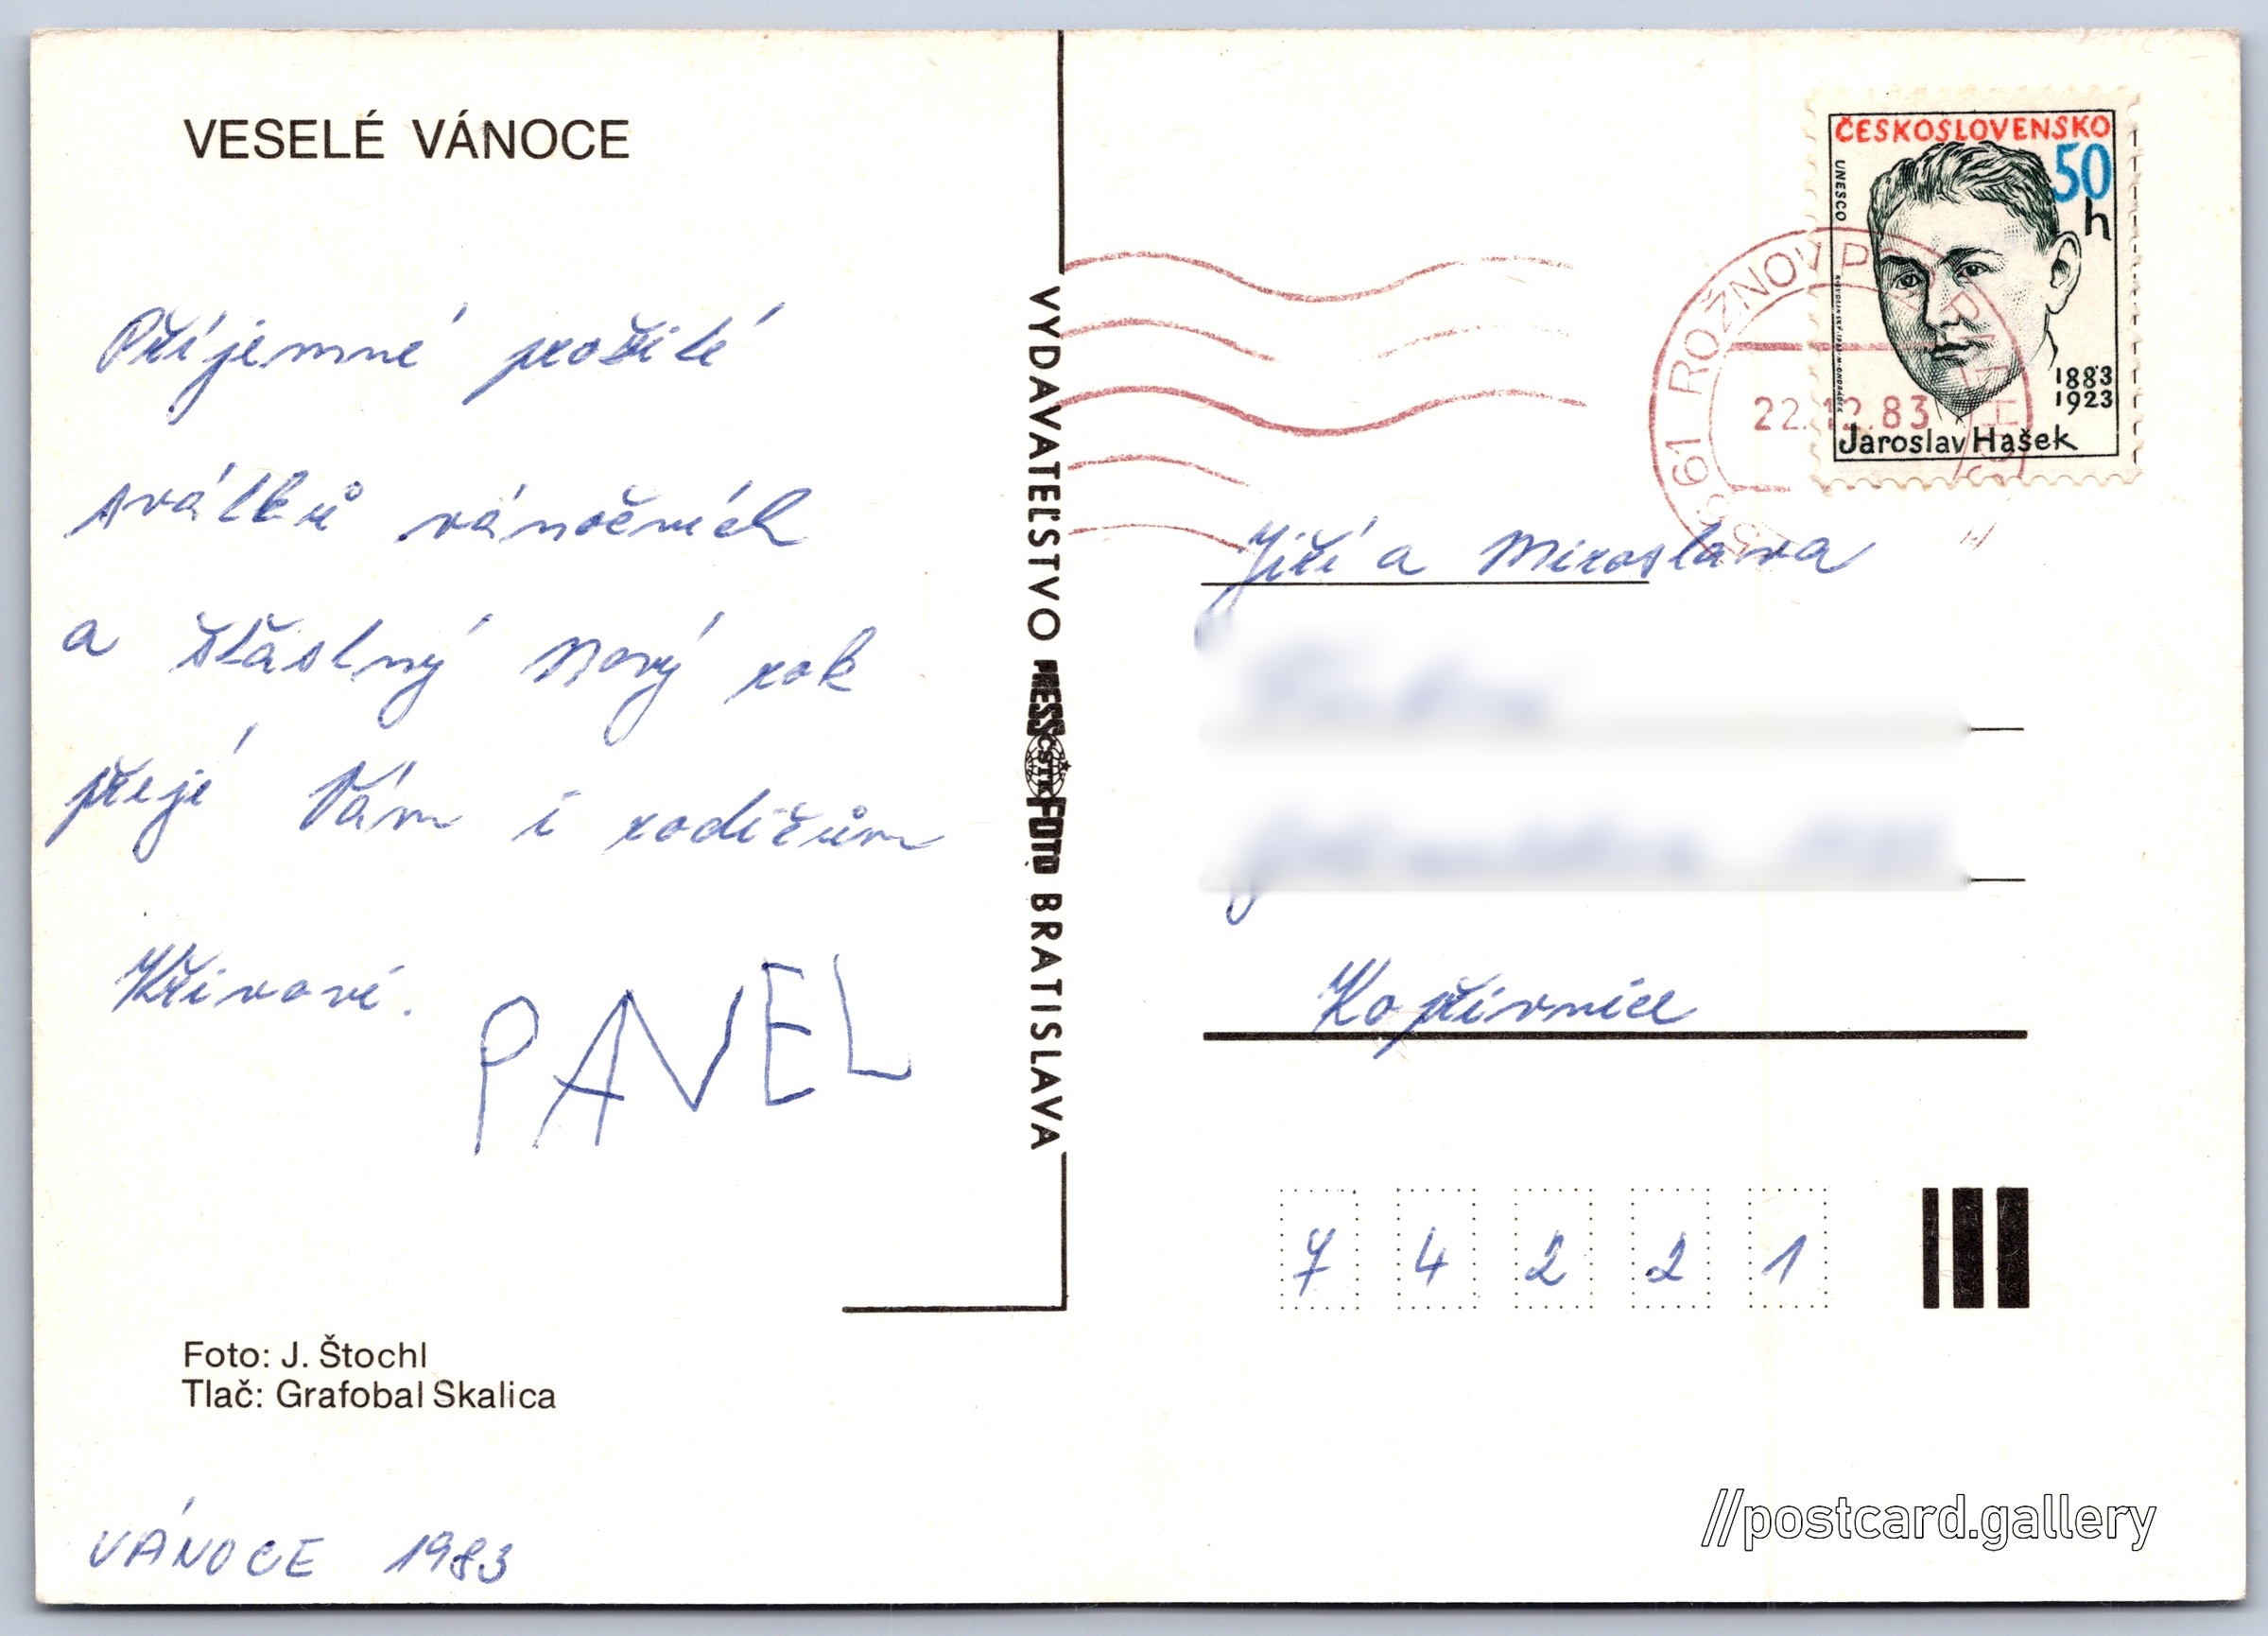 VESELÉ VÁNOCE
Příjemné prožité
svátků vánočních
a šťastný Nový rok
přejí Vám i rodičům
Křivovi.
PAVEL
Foto: J. Štochl
Tlač: Grafobal Skalica
VÁNOCE 1983
VYDAVATEĽSTVO PRESSFOTO BRATISLAVA
ČSTK
ČESKOSLOVENSKO
50
h
UNESCO
1883
1923
Jaroslav Hašek
61 ROŽNOV P
22.12.83
Jiří a Miroslava
Kopřivnice
7 4 2 2 1
//postcard.gallery